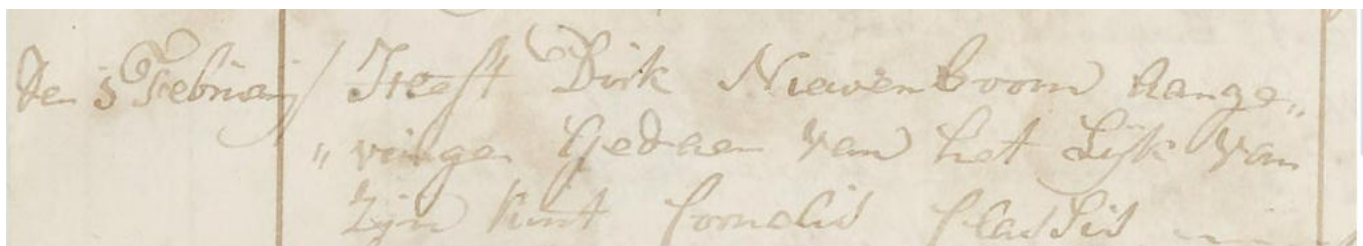 den 5 Februarij / Heeft Dirk Niewenboom Aange„
„vinge Gedaen van het Lijk van
Zijn kint Cornelis Classis